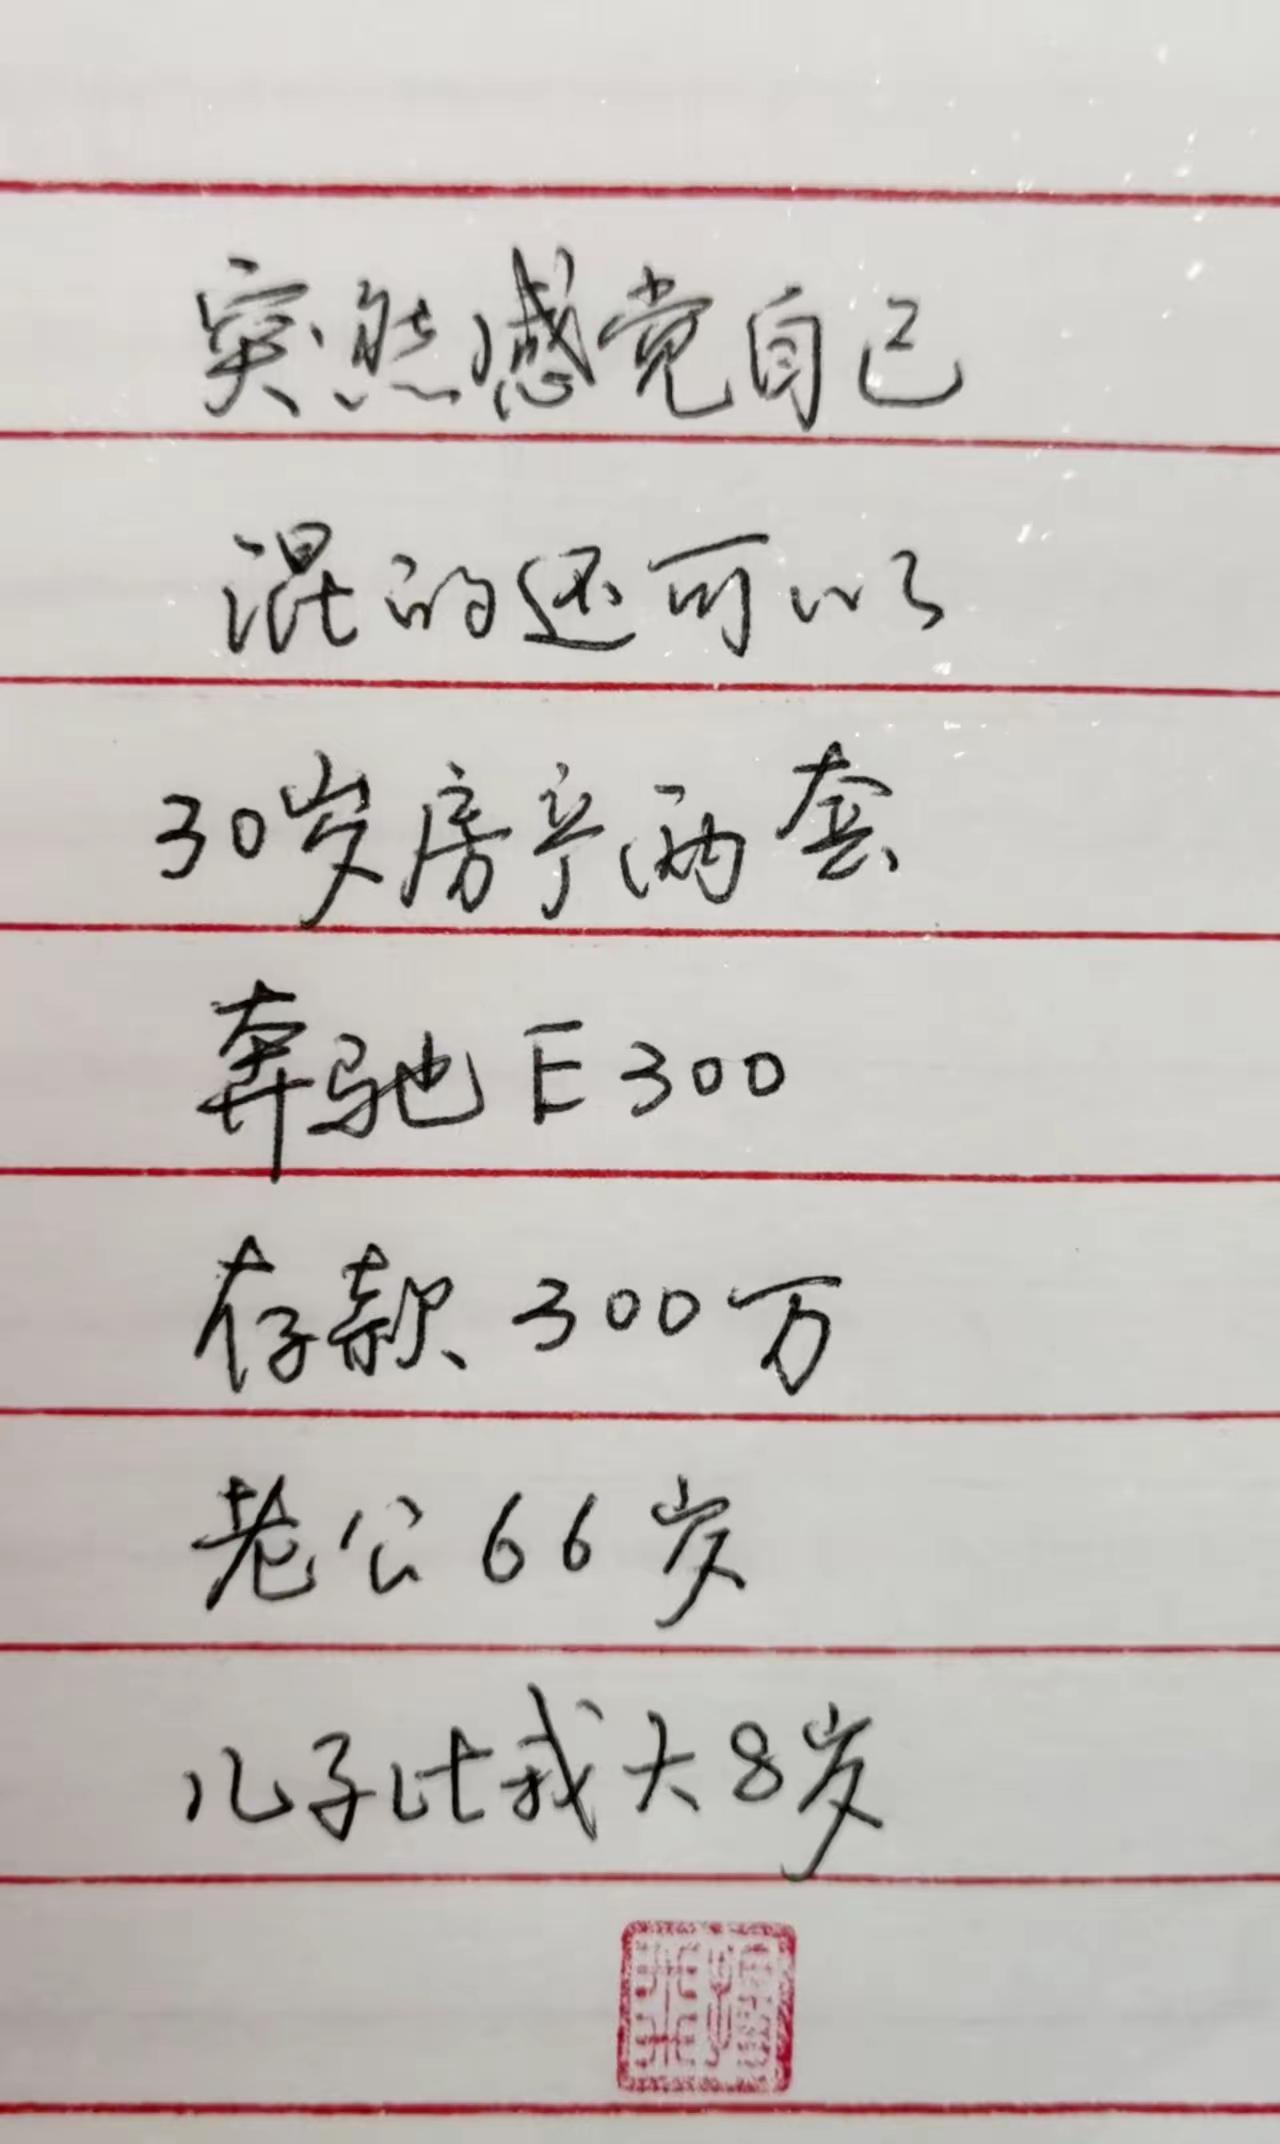 突然感觉自己
混的还可以
30岁房产两套
奔驰E300
存款300万
老公66岁
儿子比我大8岁